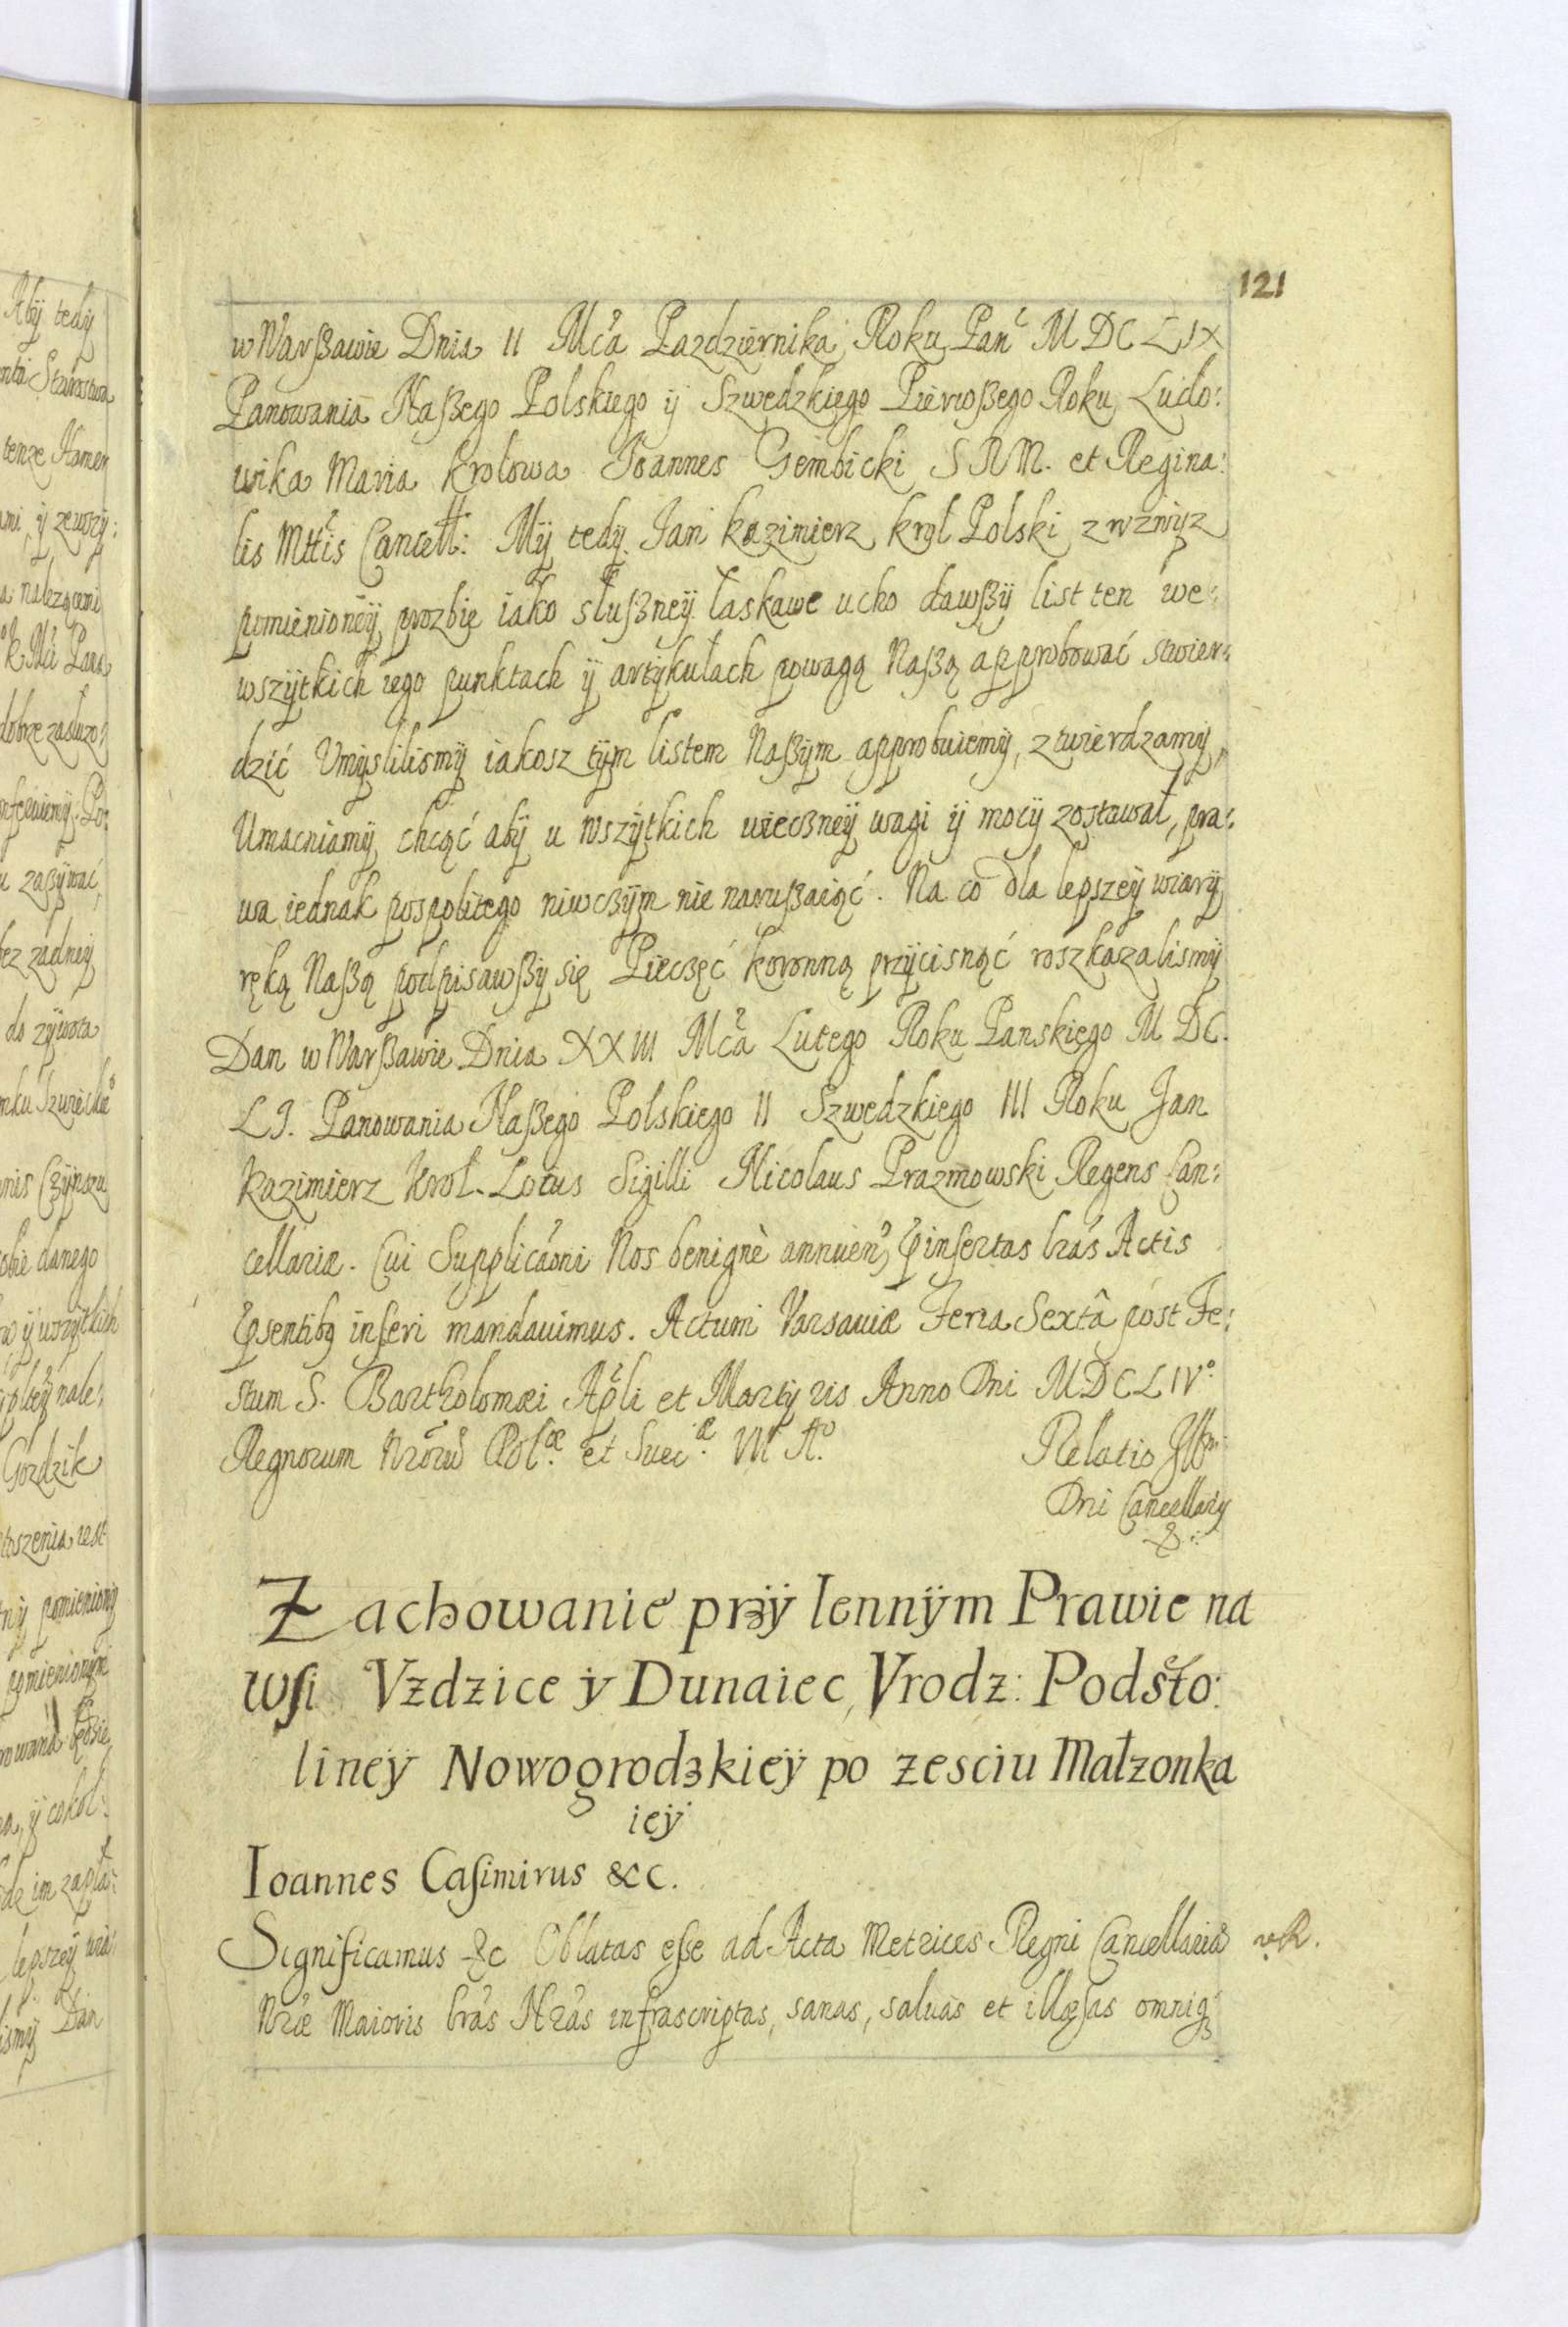 121
w Warßawie Dnia 11 Mca Pazdziernika Roku Pan MDCLIX
Panowania Naßego Polskiego ÿ Szwedzkiego Pierwßego Roku Ludo:
wika Maria krolowa Joannes Gembicki SRM. et Regina:
lis Mttis Cancell: Mÿ tedÿ Jan kazimierz krol Polski zwzwyz
pomienionëÿ prozbie iako słußneÿ łaskawe ucho dawßÿ list ten we:
wszÿtkich iego punktach ÿ artÿkułach powagą Naßą approbować stwier:
dzić Vmÿslilismÿ iakosz tÿm listem Naßÿm approbuiemÿ, ztwierdzamÿ,
Umacniamÿ chcąć abÿ u wszÿtkich wieczneÿ wagi ÿ mocÿ zostawał, pra:
wa iednak pospolitego niwczÿm nie narußaiąć. Na co dla lepszeÿ wiarÿ
ręką Naßą podpisawßÿ się Pieczęć koronną przÿcisnąć roszkazalismÿ
Dan w Warßawie Dnia XXIII Mca Lutego Roku Panskiego MDC.
LI. Panowania Naßego Polskiego II Szwedzkiego III Roku Jan
Kazimierz Krol. Locus Sigilli Nicolaus Prazmowski Regens Can:
cellariæ. Cui Supplicaoni Nos benignè annuen, pinsertas lras Actis
psentibq inseri mandauimus. Actum Varsauiæ Feria Sextâ post Fe:
stum S. Bartholomæi Apli et Martyris Anno Dni MDCLIV°
Regnorum Nrorū Pol.æ et Suec.æ VI A°. Relatio Illmi
Dni Cancellarÿ
&:
Zachowanie przÿ lennÿm Prawie na
wsi Vzdzice ÿ Dunaiec, Vrodz: Podsto:
lineÿ Nowogrodzkieÿ po zesciu Małzonka
ieÿ
Ioannes Casimirus &c.
Significamus &c Oblatas esse ad Acta Metrices Regni Cancellariæ vR.
Nræ Maioris lras Nras infrascriptas, sanas, saluas et illæsas omniq